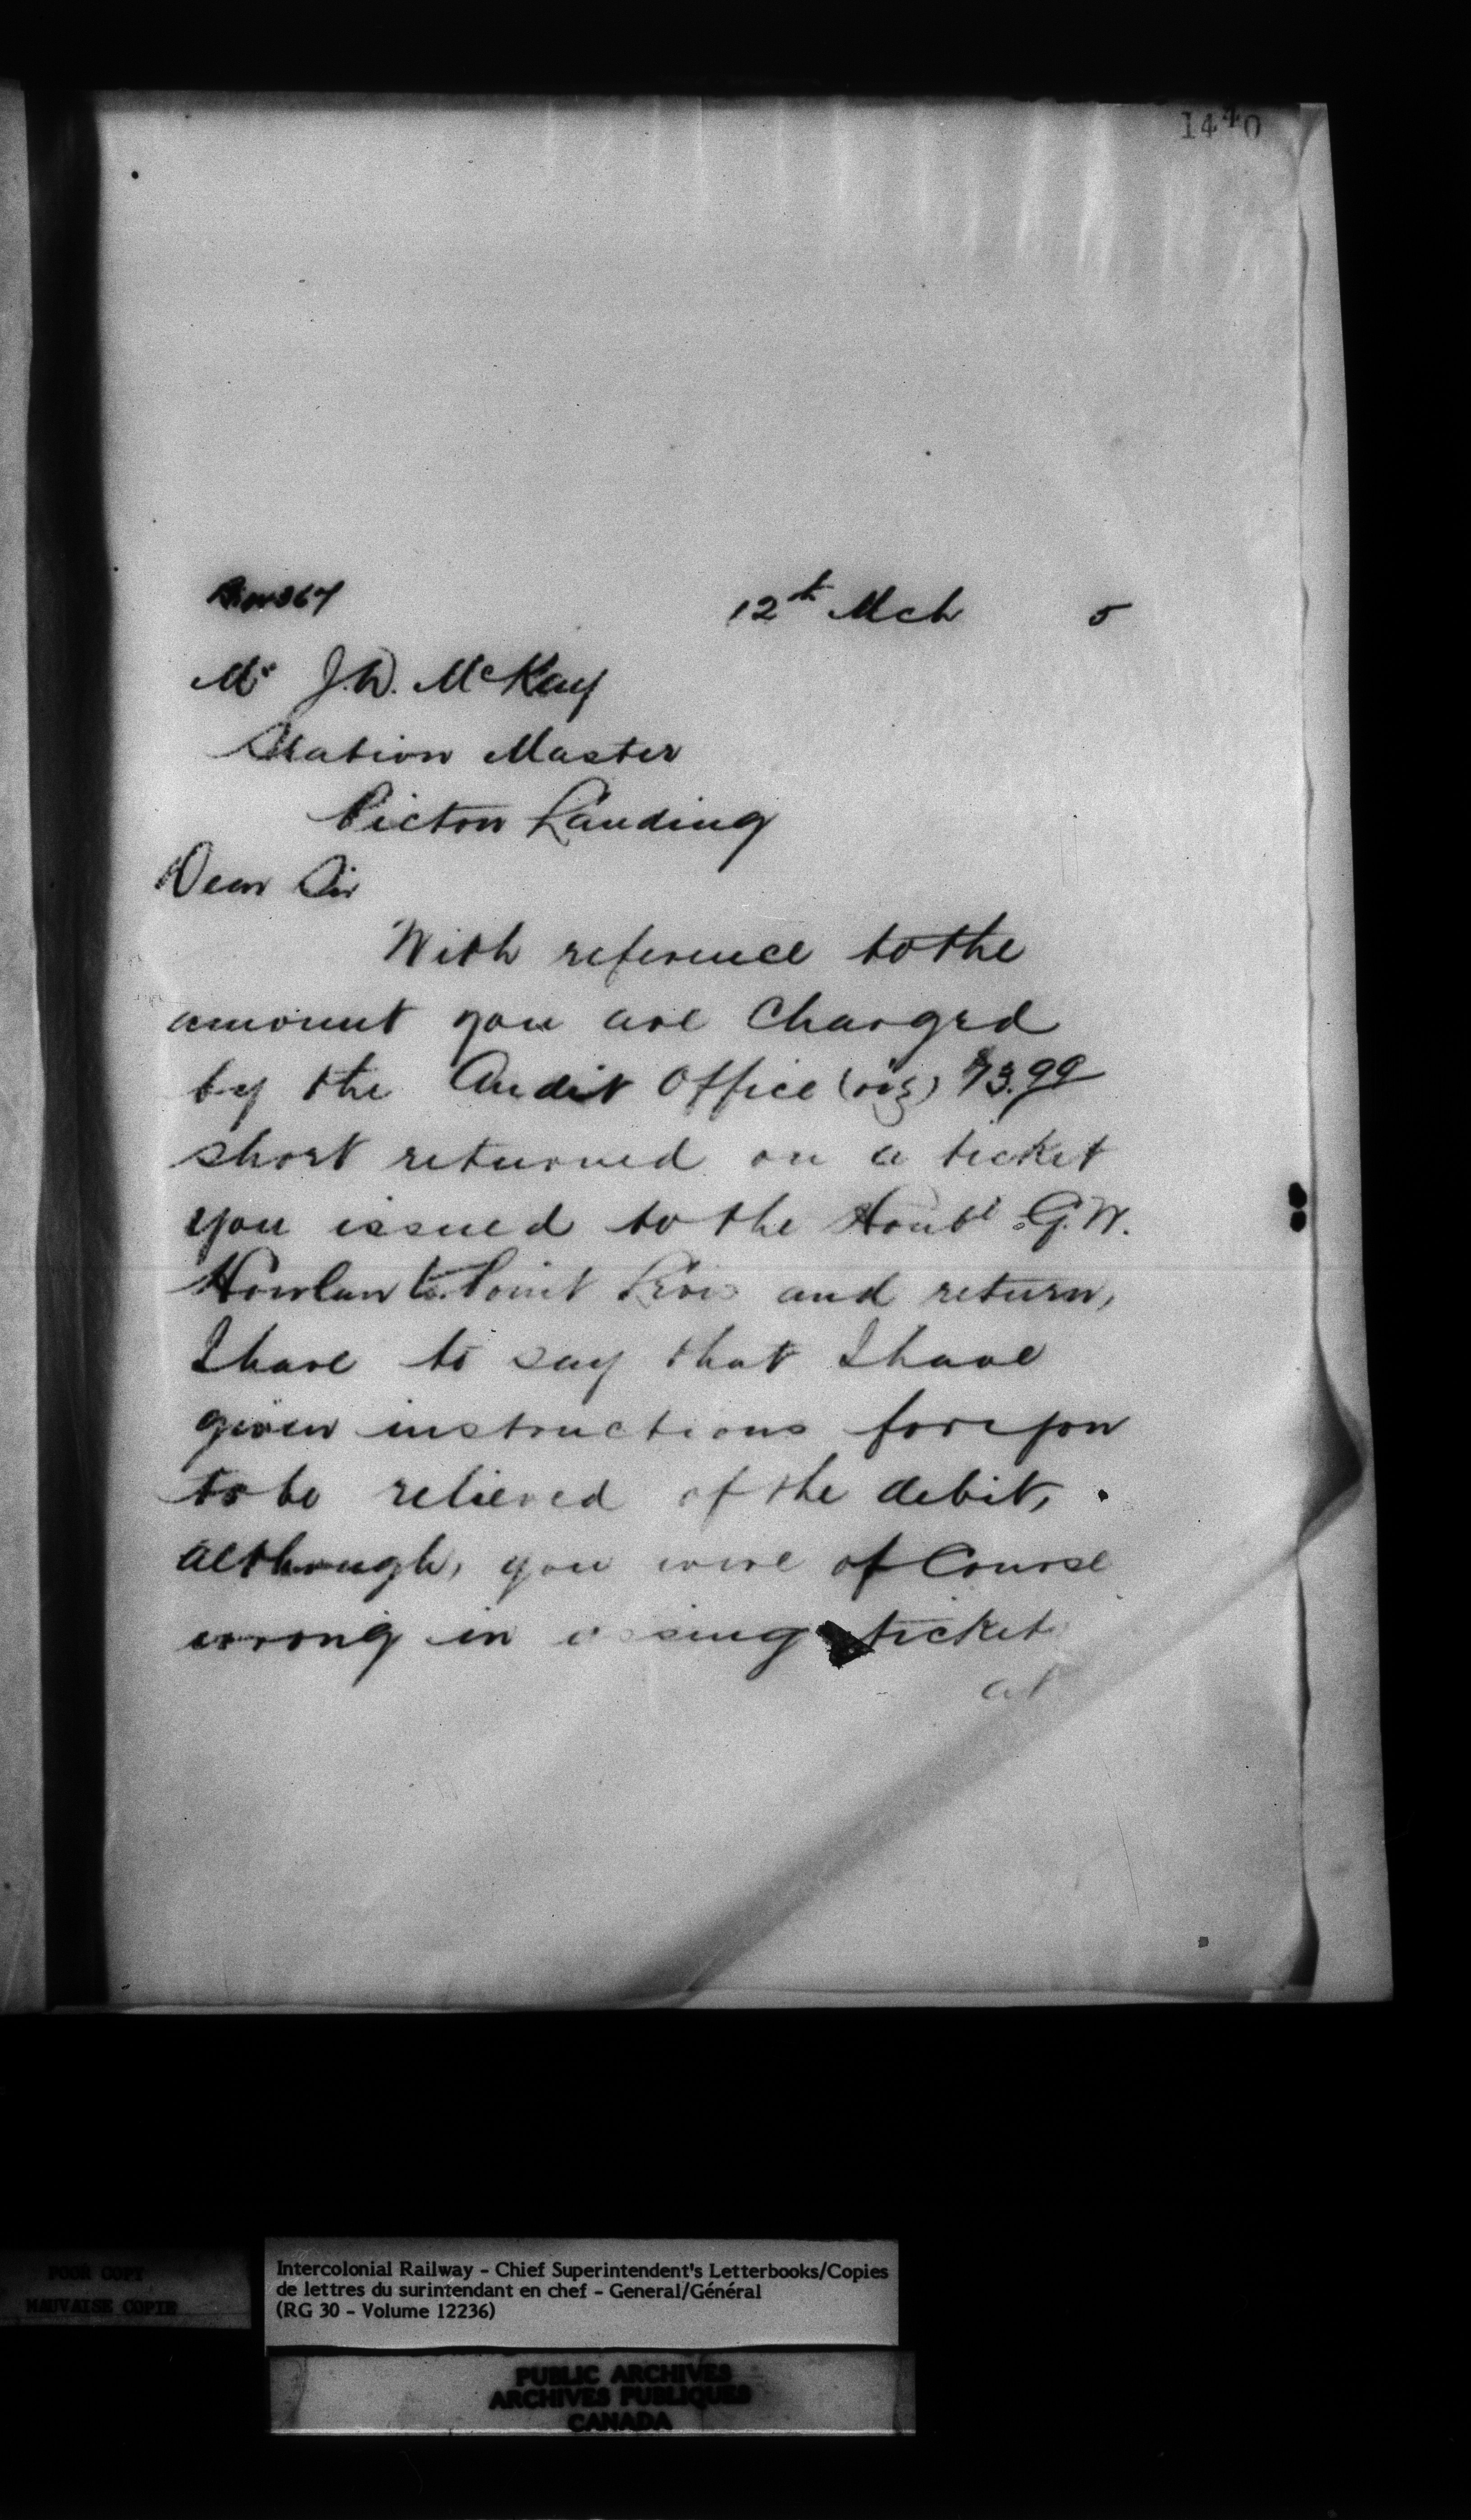 1440
12th Mch 5
Mr J.W. McKay
Station Master
Pictou Landing
Dear Sir
With reference to the
amount you are Charged
by the Audit Office (viz) $3.99
short returned on a ticket
you issued to the Honble G.W.
Howlan to Point Levis and return,
I have to say that I have
given instructions for you
to be relieved of the debit,
although, you were of Course
wrong in issuing ticket
at
POOR COPY
MAUVAISE COPIE
Intercolonial Railway - Chief Superintendent's Letterbooks/Copies
de lettres du surintendant en chef - General/Général
(RG 30 - Volume 12236)
PUBLIC ARCHIVES
ARCHIVES PUBLIQUES
CANADA